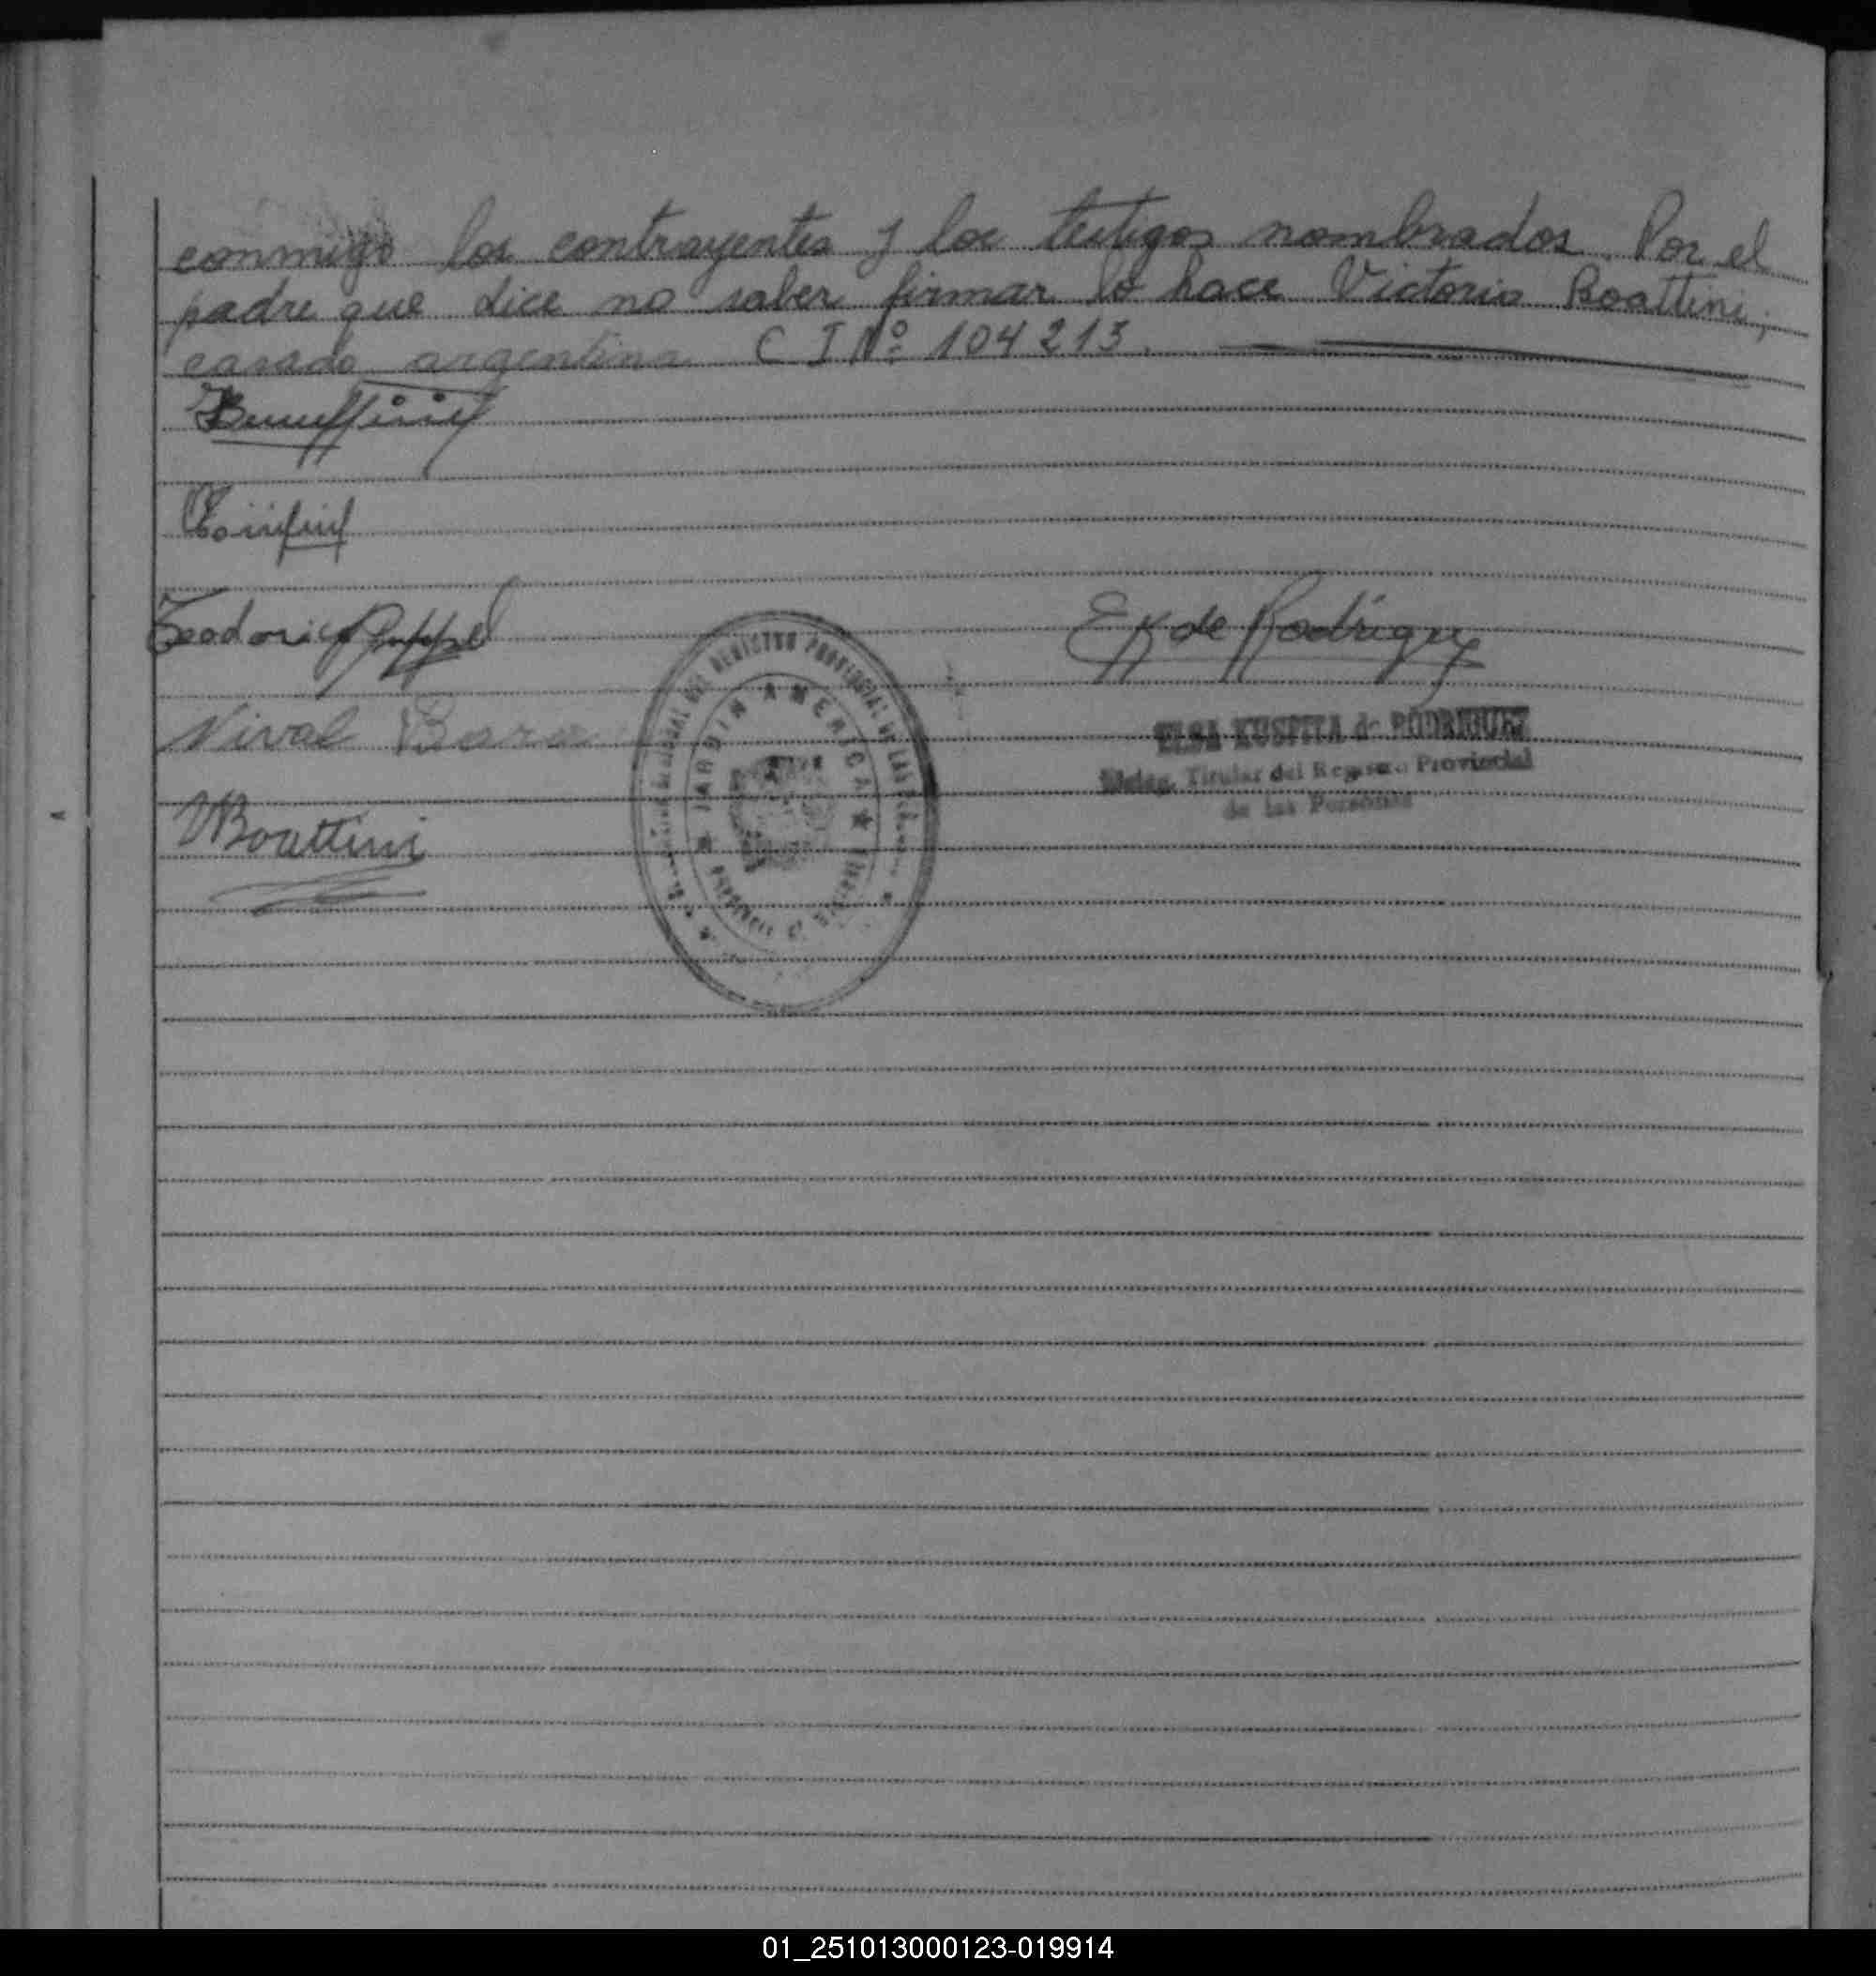 conmigo los contrayentes y los testigos nombrados. Por el
padre que dice no saber firmar lo hace Victorio Boattini,
casado argentino C I Nº 104213.
Teodoric
EK de Rodriguez
Nival Bara
ELSA KUSPITA de RODRIGUEZ
Deleg. Titular del Registro Provincial
de las Personas
VBoattini
DEL REGISTRO PROVINCIAL DE LAS
JARDIN AMERICA
01_251013000123-019914